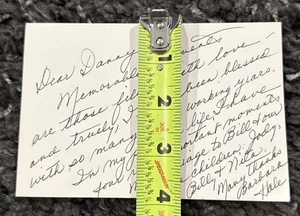 Dear Danny
Memorable
are those filled with love -
and truly, I have been blessed
with so many working years.
In my life, I have
important moments
to Bill & our
children: Jody,
Bill & Nita.
Many thanks
Barbara
Hale
1
2
3
4